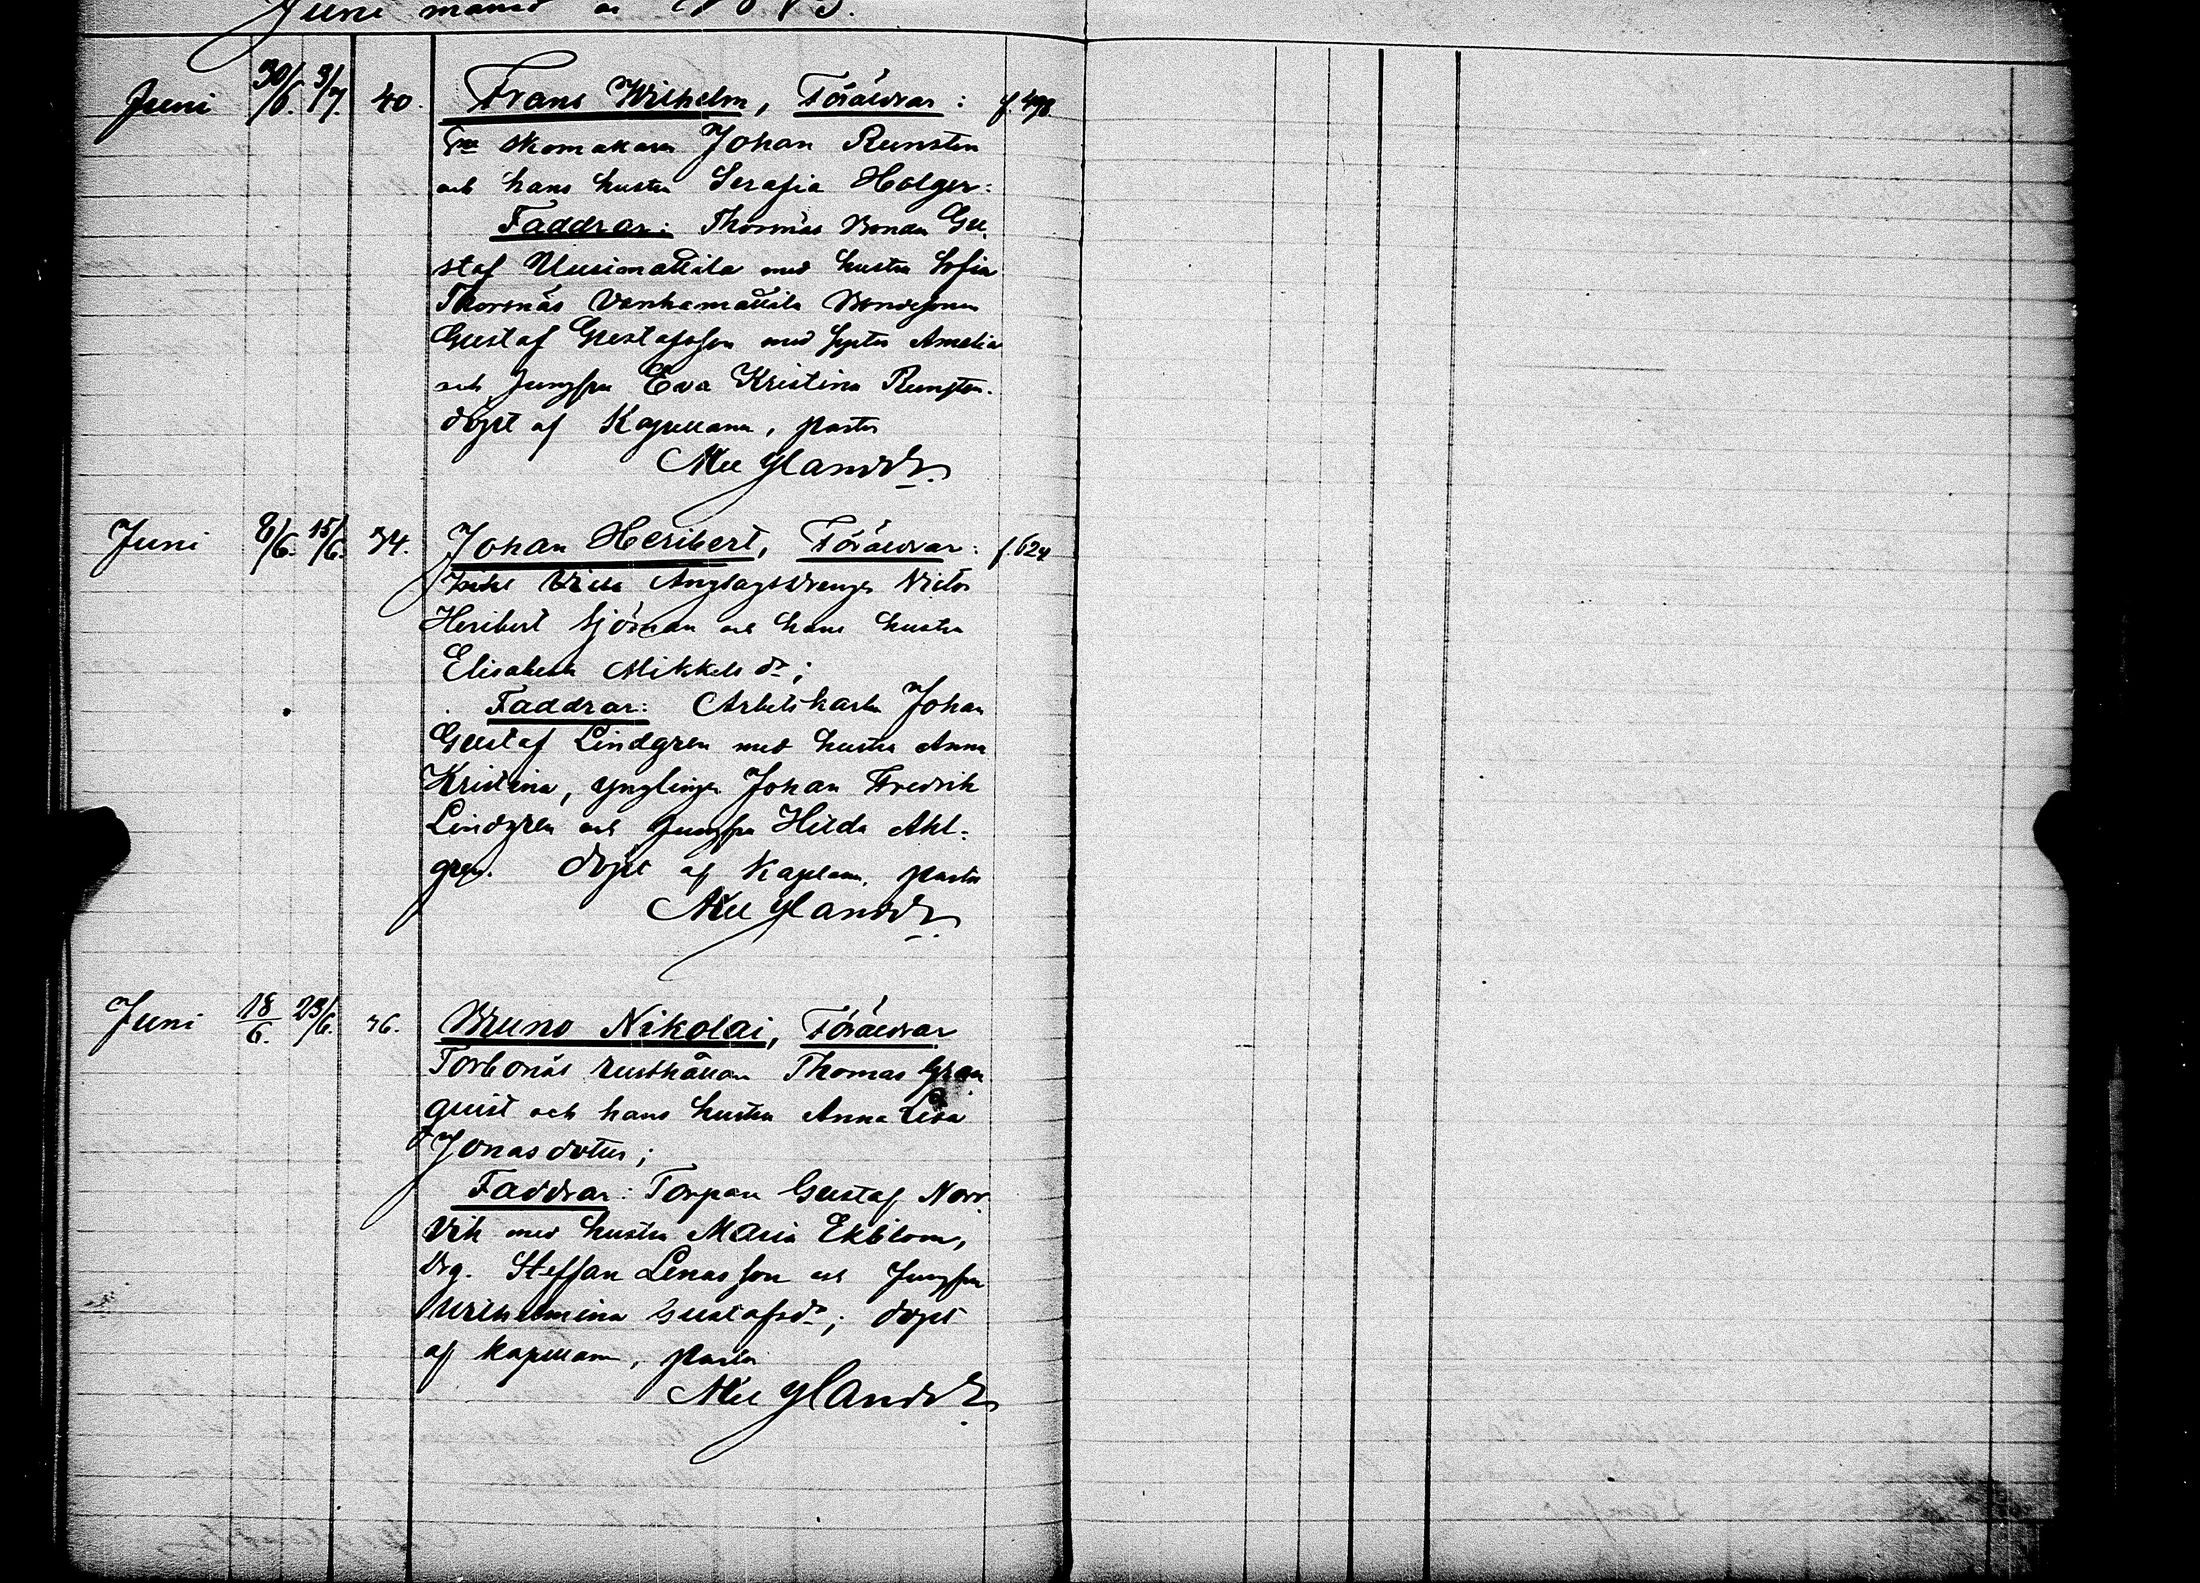 Juni månad
Juni 30/6. 3/7. 40. Frans Wilhelm, Föräldrar: f. 498.
skomakaren Johan Runsten
och hans hustru Serafia Holger:
Faddrar: Thorsnäs Bonden Gu-
staf Uusimattila med hustru Sofia
Thorsnäs Vanhamattila Bondesonen
Gustaf Gustafsson med syster Amalia
och Jungfru Eva Kristina Runsten.
döpt af Kapellanen, pastor
Ylander
Juni 8/6. 15/6. 34. Johan Heribert, Föräldrar: f. 624
Villa Ånglagsdrengen Victor
Heribert Sjöman och hans hustru
Elisabeth Mikkels dr;
Faddrar: Arbetskarlen Johan
Gustaf Lindgren med hustru Anna
Kristina, ynglingen Johan Fredrik
Lindgren och Jungfru Hilda Ahl-
gren. döpt af Kaplan. pastor
Ylander
Juni 18/6. 23/6. 36. Bruno Nikolai, Föräldrar
Torbonäs rusthållaren Thomas Gran
quist och hans hustru Anna Lisa
Jonasdotter;
Faddrar: Torparen Gustaf Norr-
vik med hustru Maria Ekblom,
Drg. Steffan Lenasson och Jungfru
Wilhelmina Gustafsdr; döpt
af kapellanen, pastor
Ylander